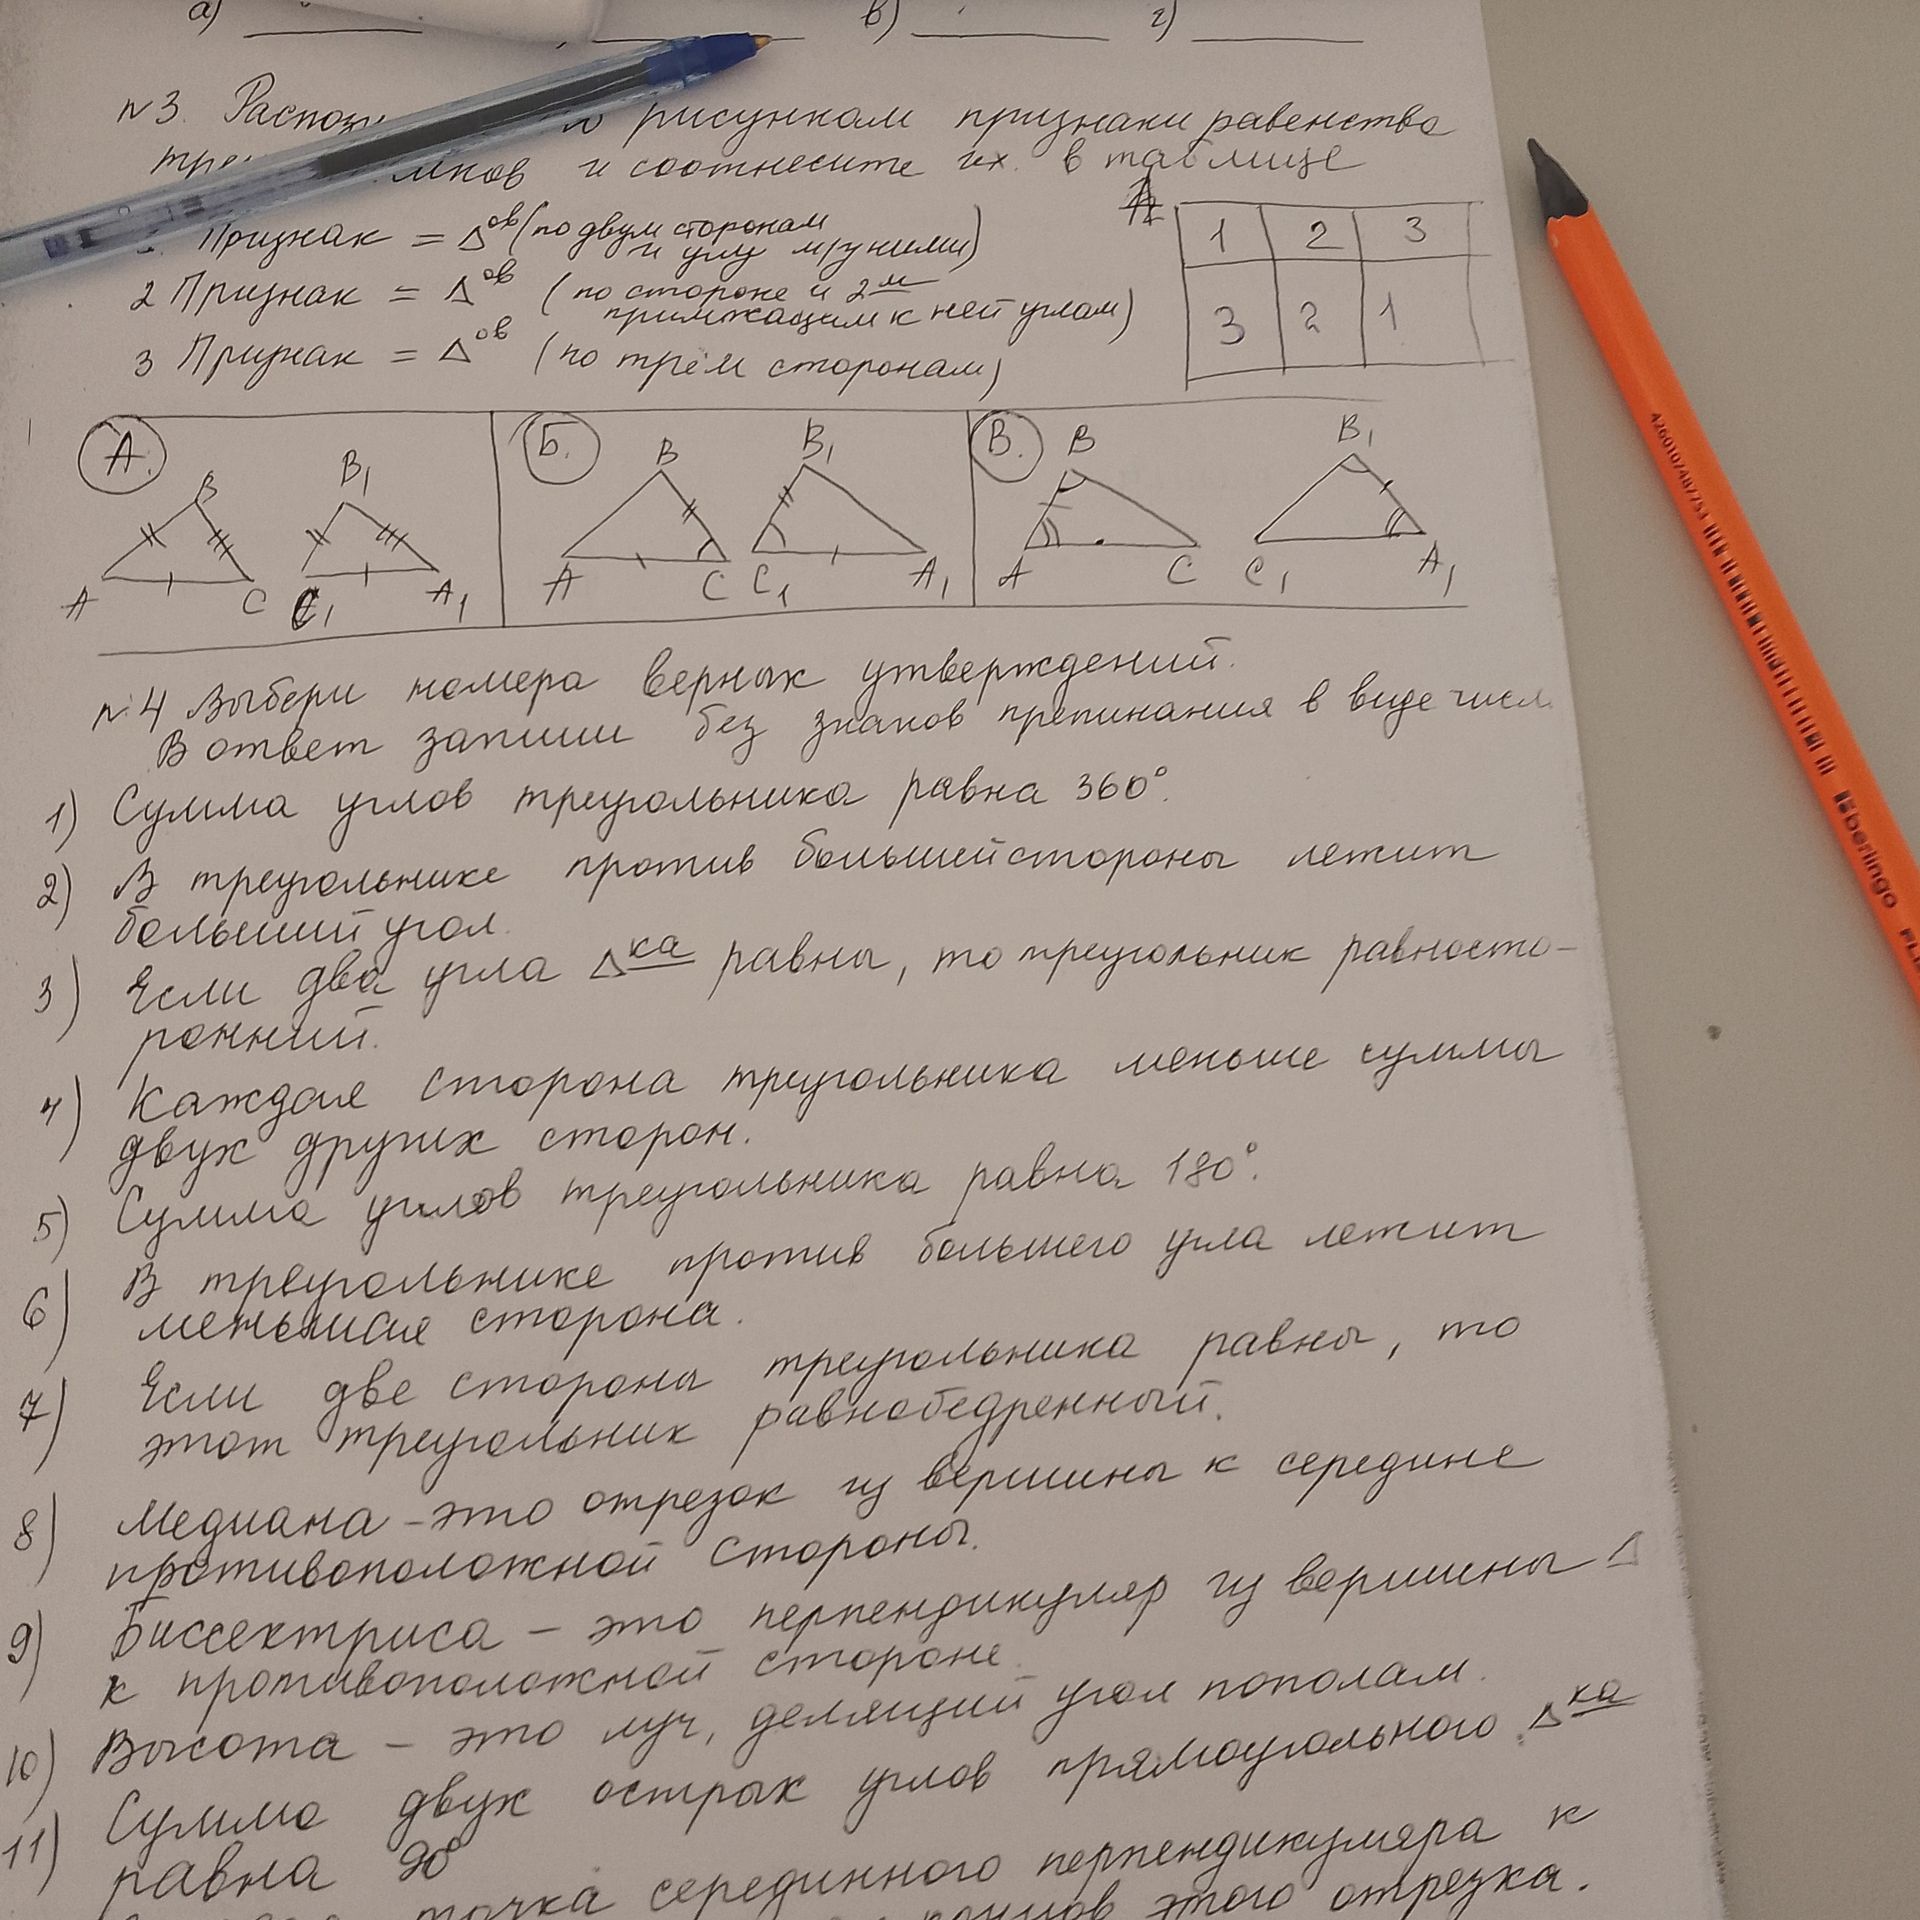 а) в) г)
№3. рисункам признаки равенства
и соотнесите их в таблице
Признак = Δ ов (по двум сторонам
и углу м/у ними)
2 Признак = Δ ов (по стороне и 2 м
прилежащим к ней углам)
3 Признак = Δ ов (по трём сторонам)
1 2 3
3 2 1
А. Б. В.
B B1 B B1 B B1
A C C1 A1 A C C1 A1 A C C1 A1
№4 Выбери номера верных утверждений.
В ответ запиши без знаков препинания в виде
1) Сумма углов треугольника равна 360°.
2) В треугольнике против большей стороны лежит
больший угол.
3) Если два угла Δ ка равны, то треугольник равносто-
ронний.
4) Каждая сторона треугольника меньше суммы
двух других сторон.
5) Сумма углов треугольника равна 180°.
6) В треугольнике против большего угла лежит
меньшая сторона.
7) Если две стороны треугольника равны, то
этот треугольник равнобедренный.
8) Медиана – это отрезок из вершины к середине
противоположной стороны.
9) Биссектриса – это перпендикуляр из вершины Δ
к противоположной стороне.
10) Высота – это луч, делящий угол пополам.
11) Сумма двух острых углов прямоугольного Δ ка
равна 90°
точка серединного перпендикуляра к
концов этого отрезка.
4260107487753
berlingo